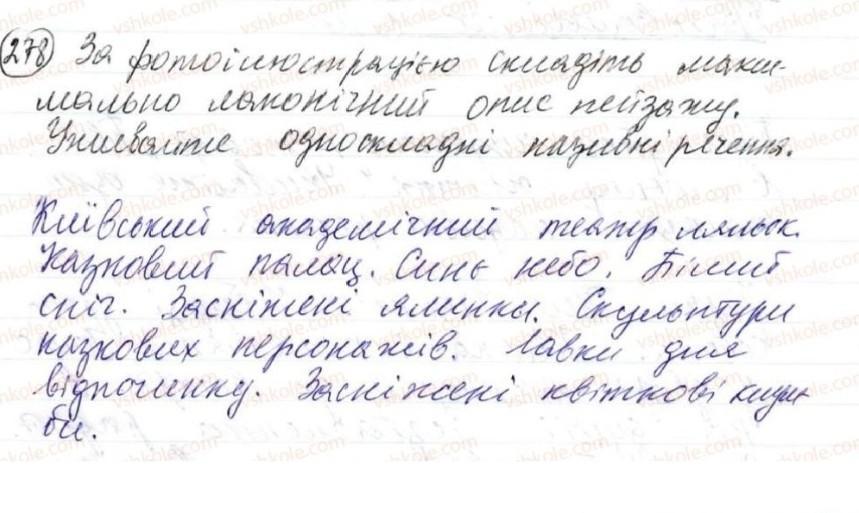 278 За фотоілюстрацією складіть макси-
мально лаконічний опис пейзажу.
Уживайте односкладні називні речення.
Київський академічний театр ляльок.
Казковий палац. Синє небо. Білий
сніг. Засніжені ялинки. Скульптури
казкових персонажів. Лавки для
відпочинку. Засніжені квіткові клум-
би.
vshkole.com